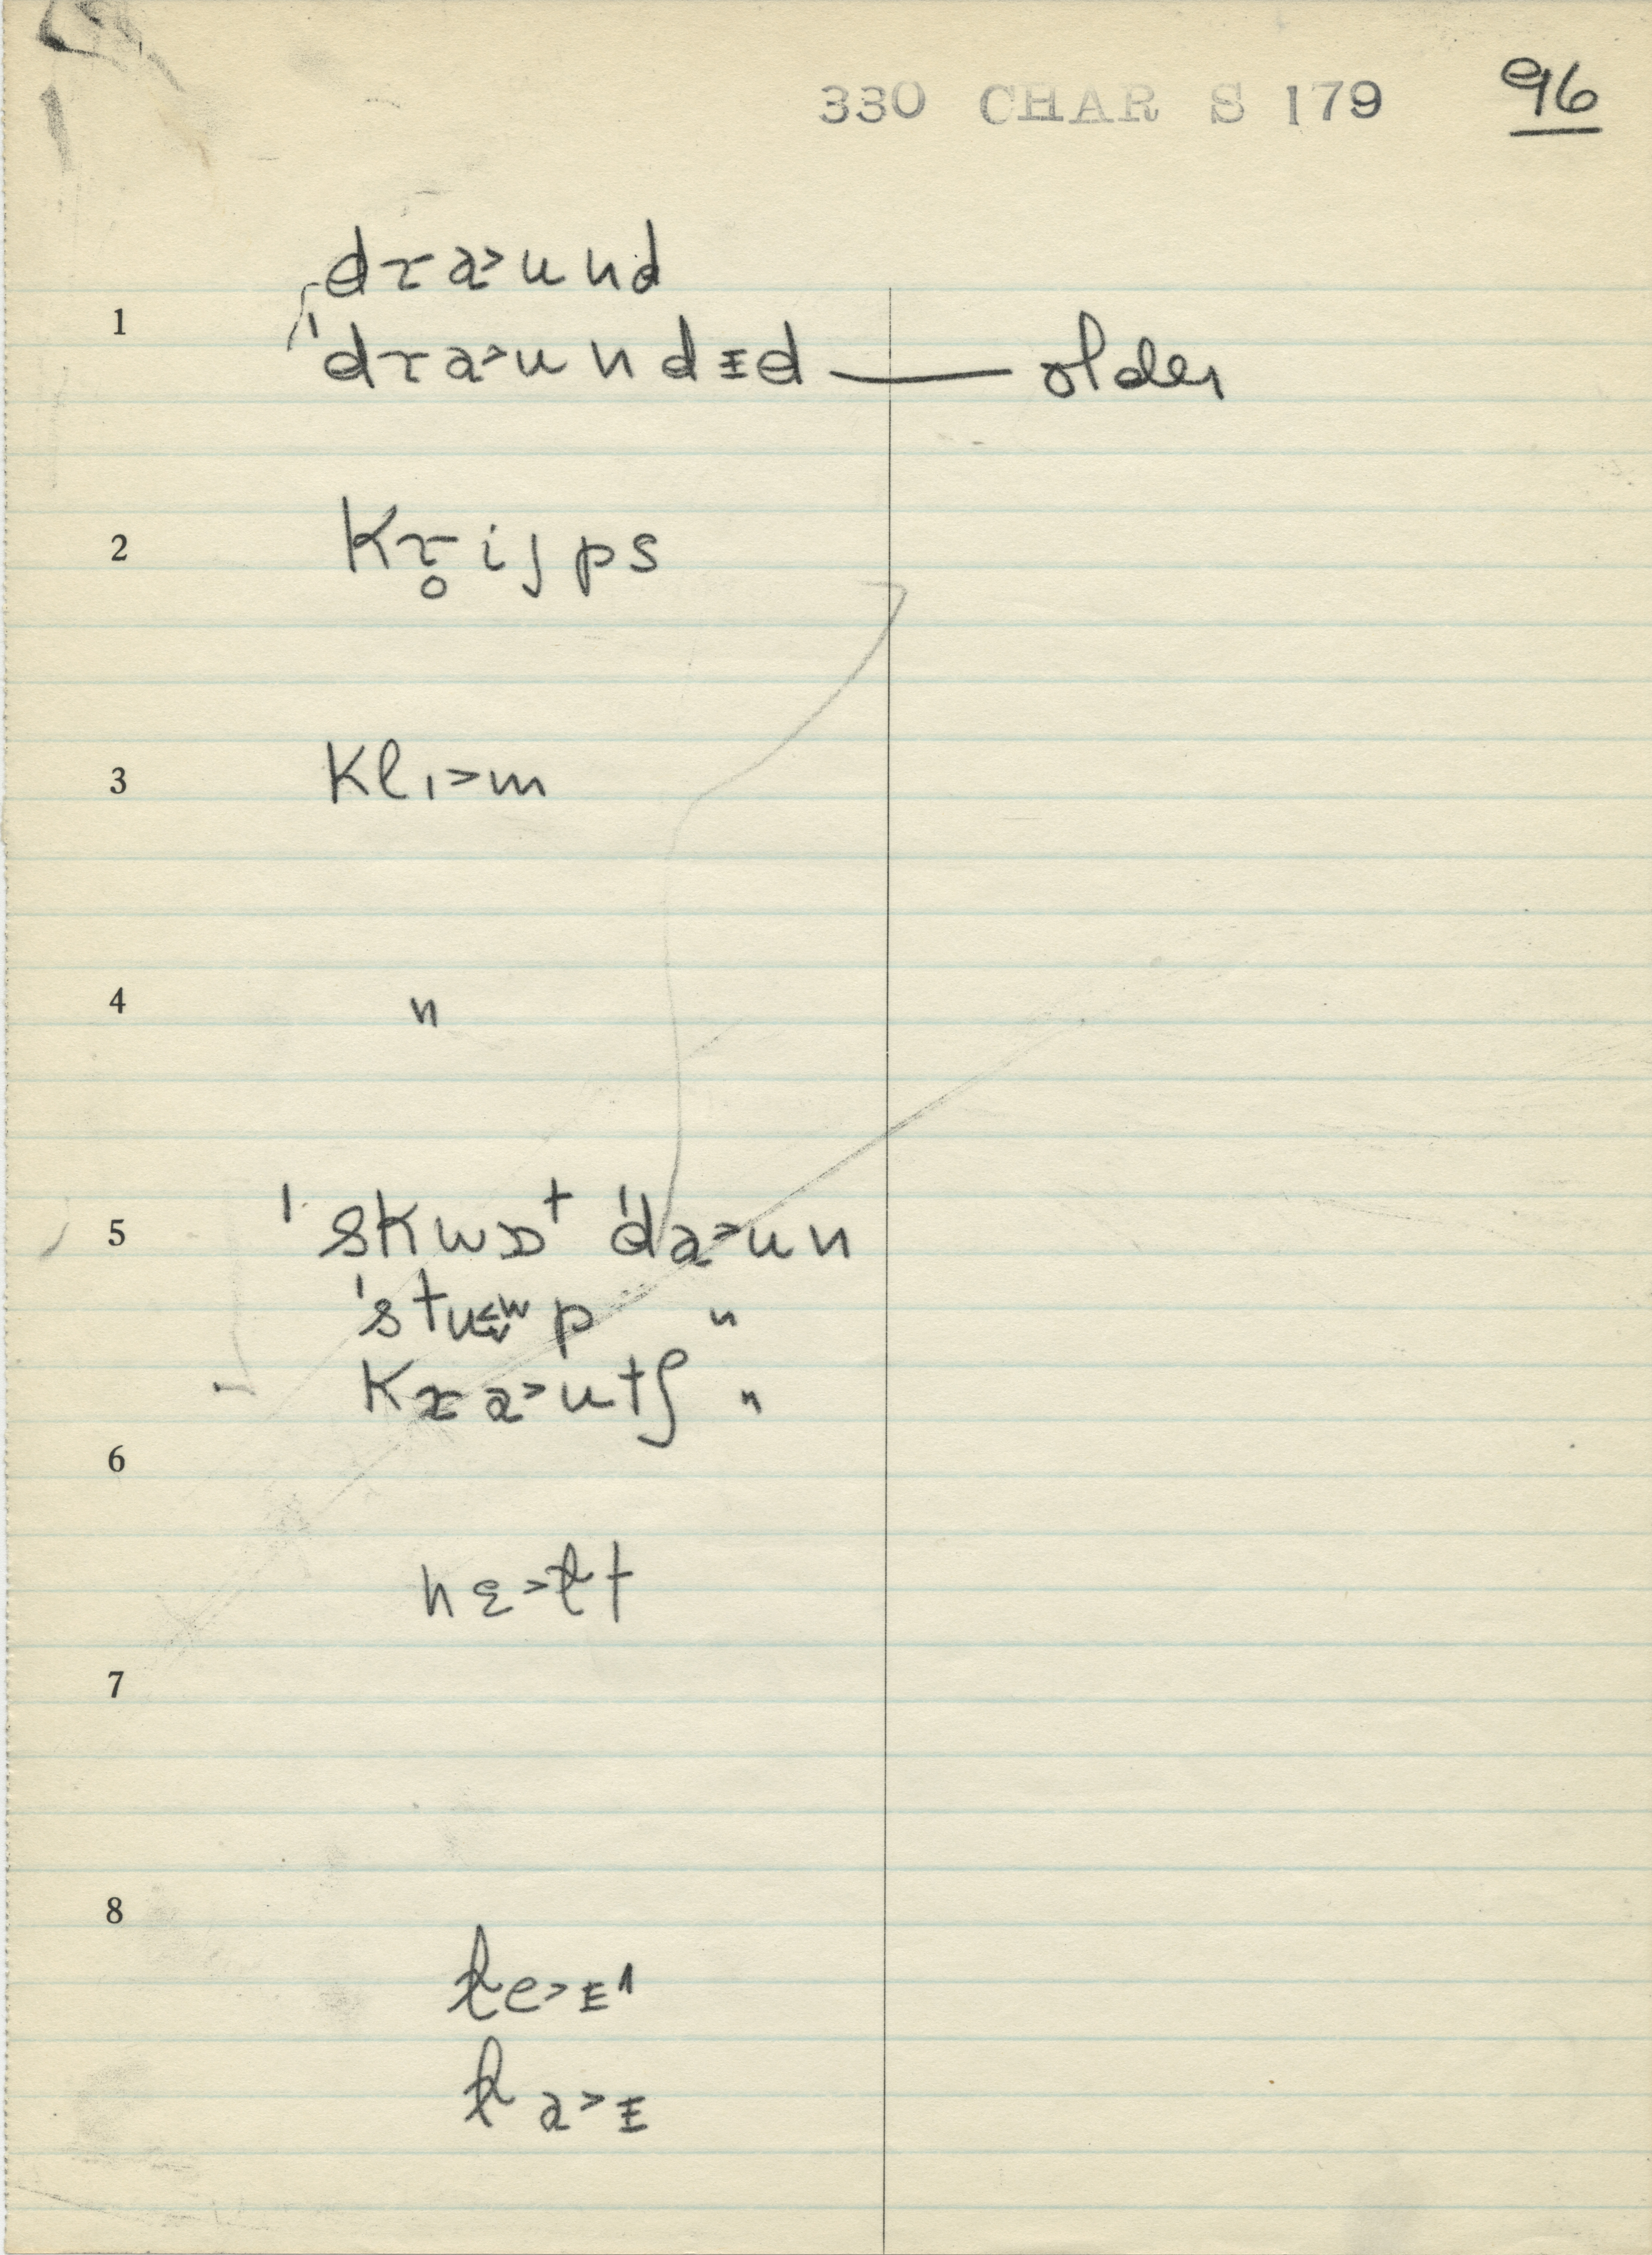 330 CHAR S 179 96
dɾa>und
1
'dɾa>undɪd — older
2 kɾ̥ijps
3 klɪ>m
4 "
5 'skwɒt 'da>un
'stu<w p "
kɾa>utʃ "
6
hɛ>ɫt
7
8
ɫe>ɪ^
ɫa>ɪ